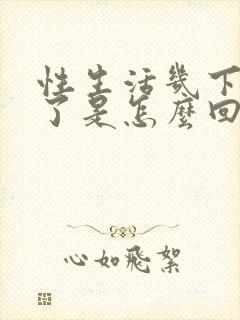 性生活幾下
了是怎麼回
心如飛絮